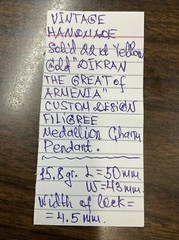 VINTAGE
HANDMADE
Solid 22 ct Yellow
Gold "DIKRAN
THE GREAT of
ARMENIA"
CUSTOM DESIGN
FILIGREE
Medallion Charm
Pendant.
15.8 gr. L = 50 mm.
W = 43 mm.
Width of lock =
= 4.5 mm.